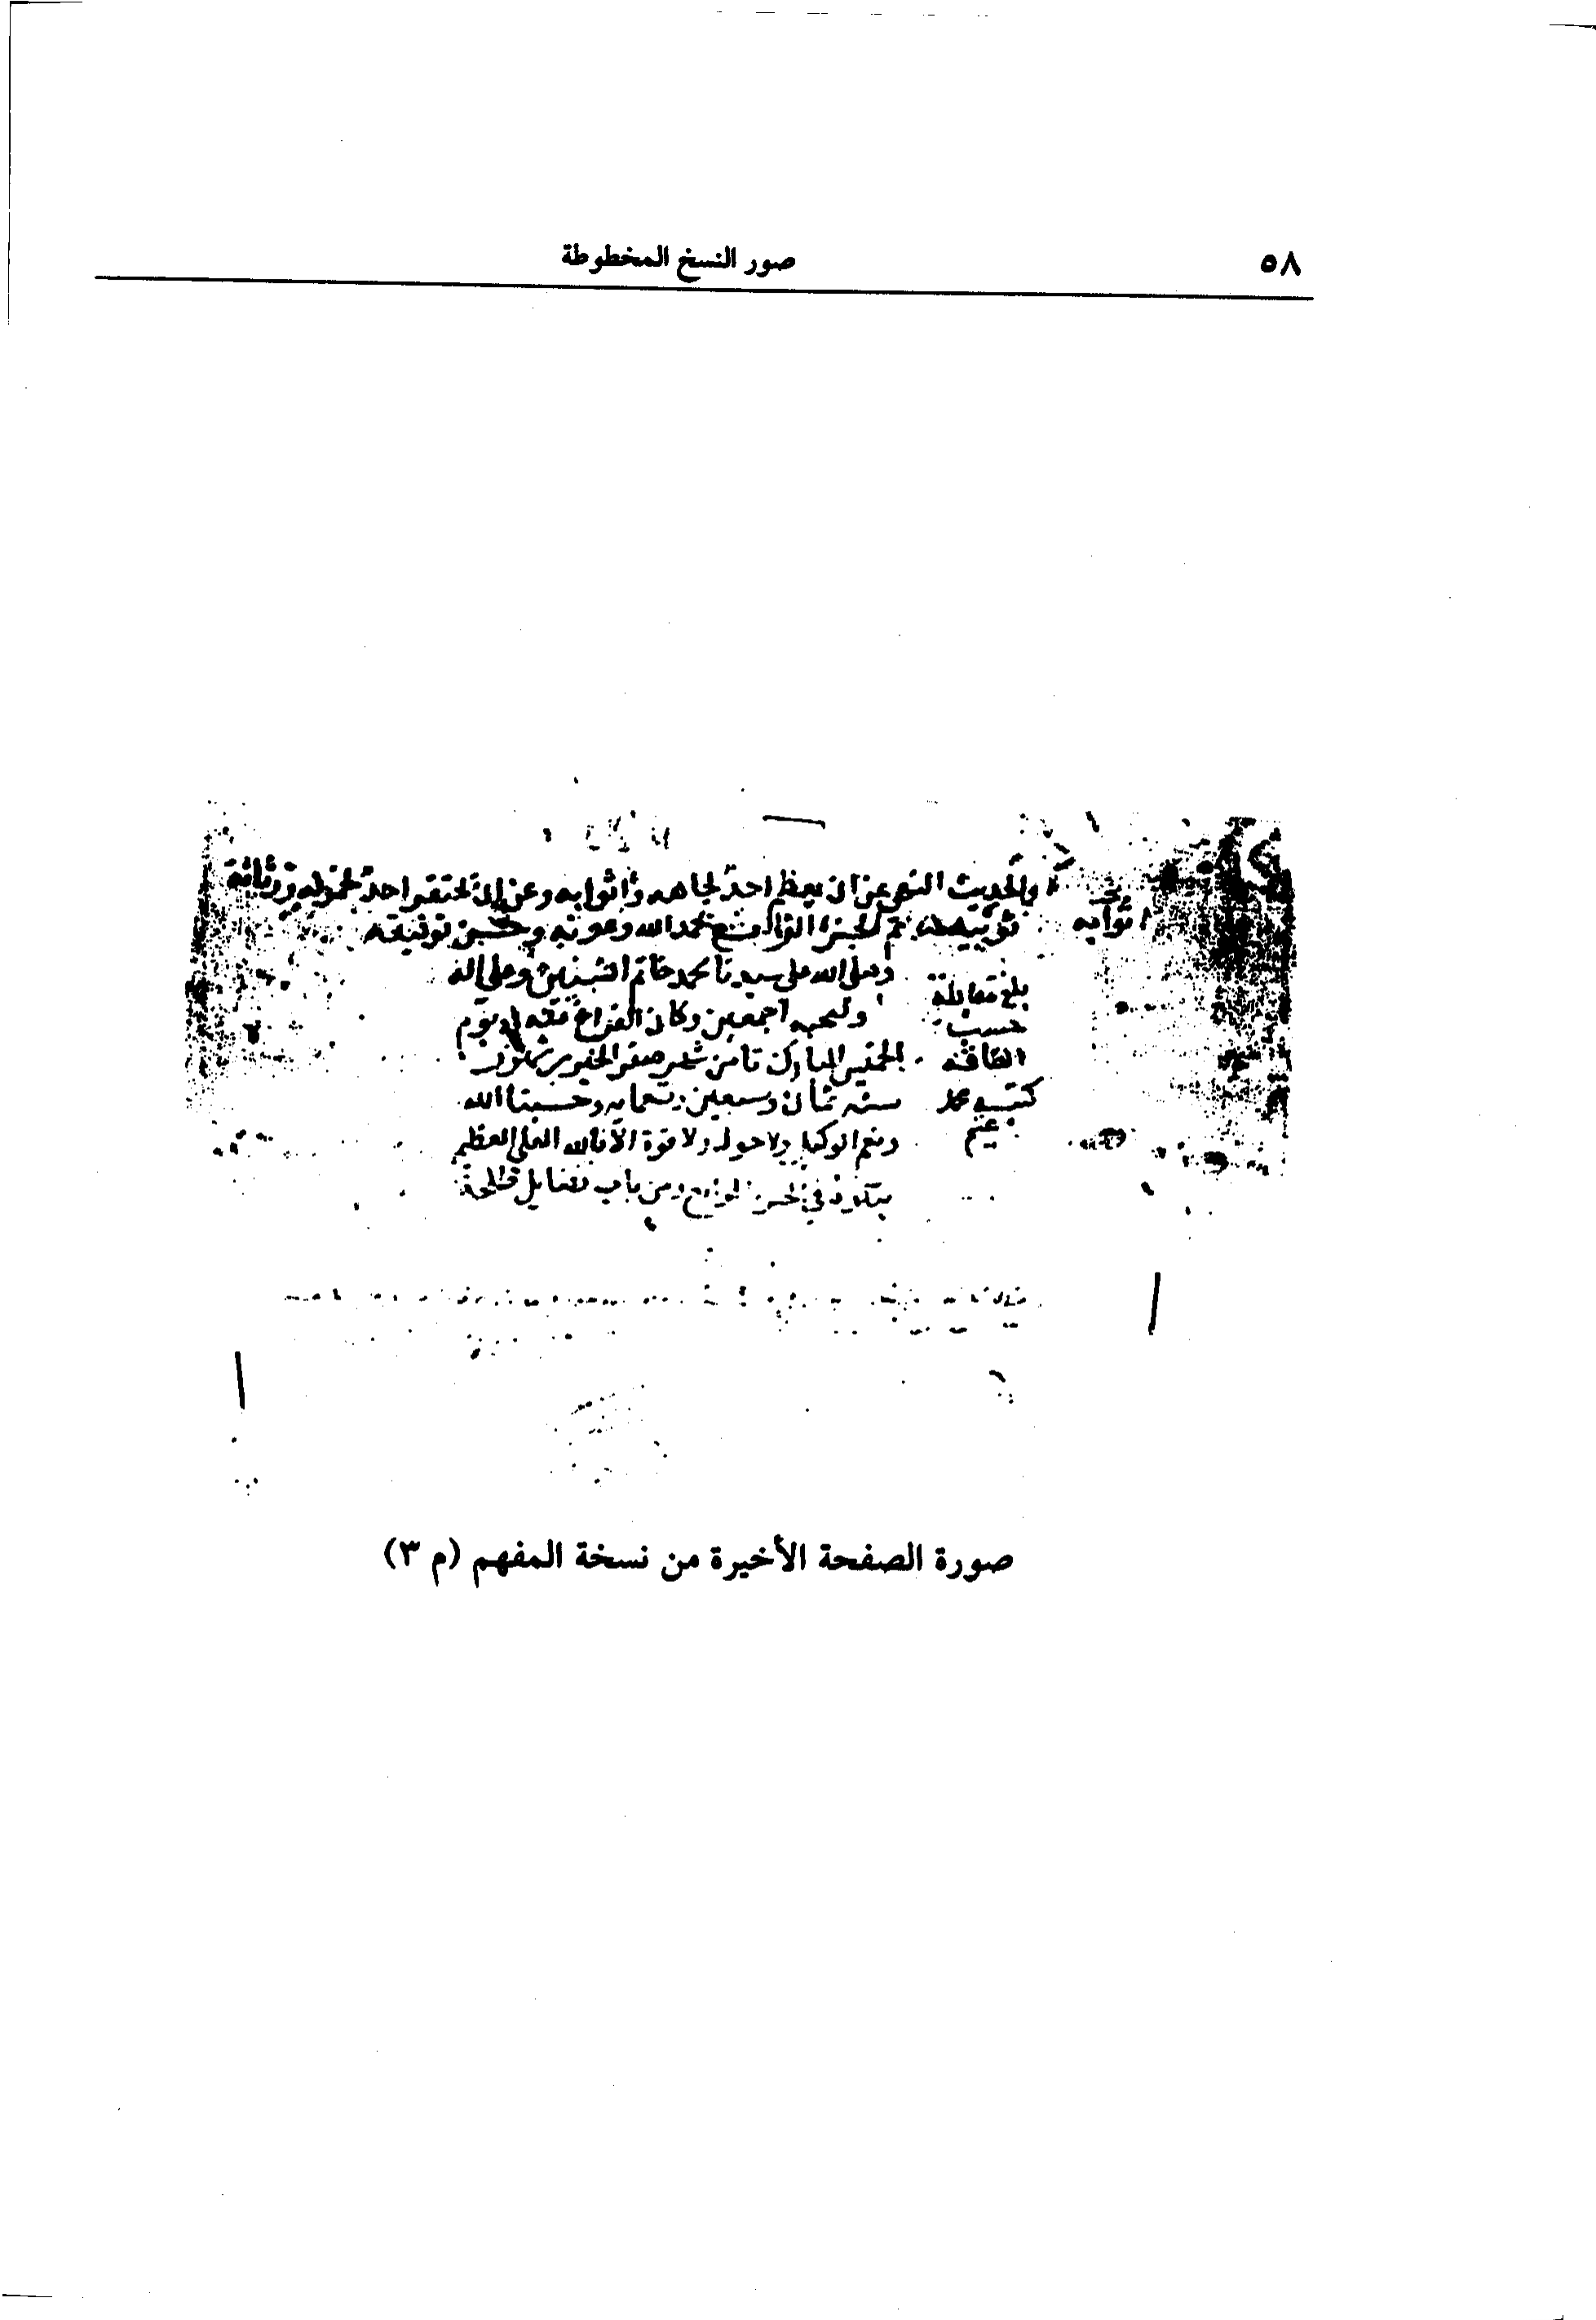 ٥٨
صور النسخ المخطوطة
في الحديث النهي عن ان يعظم احد لجاهه واثوابه وعن ان يحتقر احد لخموله ورثاثة
اثوابه
ثوبيه تم الجزء الثالث بحمد الله وعونه وحسن توفيقه
وصلى الله على سيدنا محمد خاتم النبيين وعلى اله
وصحبه اجمعين وكان الفراغ منه في يوم
الخميس المبارك ثامن شهر صفر الخير من شهور
سنة ثمان وسبعين وتسعمايه وحسبنا الله
ونعم الوكيل ولا حول ولا قوة الا بالله العلي العظيم
يتلوه في الجزء الرابع ومن باب فضايل طلحة
بلغ مقابلة
حسب
الطاقة
كتبه محمد
صورة الصفحة الأخيرة من نسخة المفهم (م ٣)